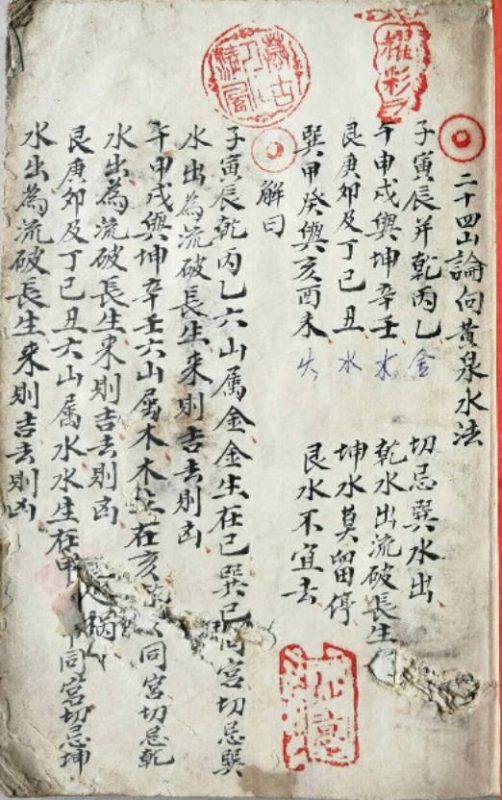 二十四山論向黃泉水法
子寅辰并乾丙乙金
切忌巽水出
午申戌與坤辛壬木
乾水出流破長生
艮庚卯及丁己丑水
坤水莫留停
巽甲癸與亥酉未火
艮水不宜去
解曰
子寅辰乾丙乙六山属金金生在巳巽巳同宮切忌巽
水出為流破長生来則吉去則凶
午申戌與坤辛壬六山属木木生在亥乾同宮切忌乾
水出為流破長生来則吉去則凶
艮庚卯及丁己丑六山属水水生在申同宮切忌坤
水出為流破長生来則吉去則凶
耀彩